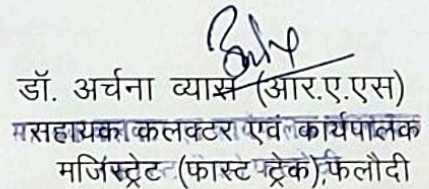 डॉ. अर्चना व्यास (आर.ए.एस)
सहायक कलक्टर एवं कार्यपालक
मजिस्ट्रेट (फास्ट ट्रेक),फलौदी